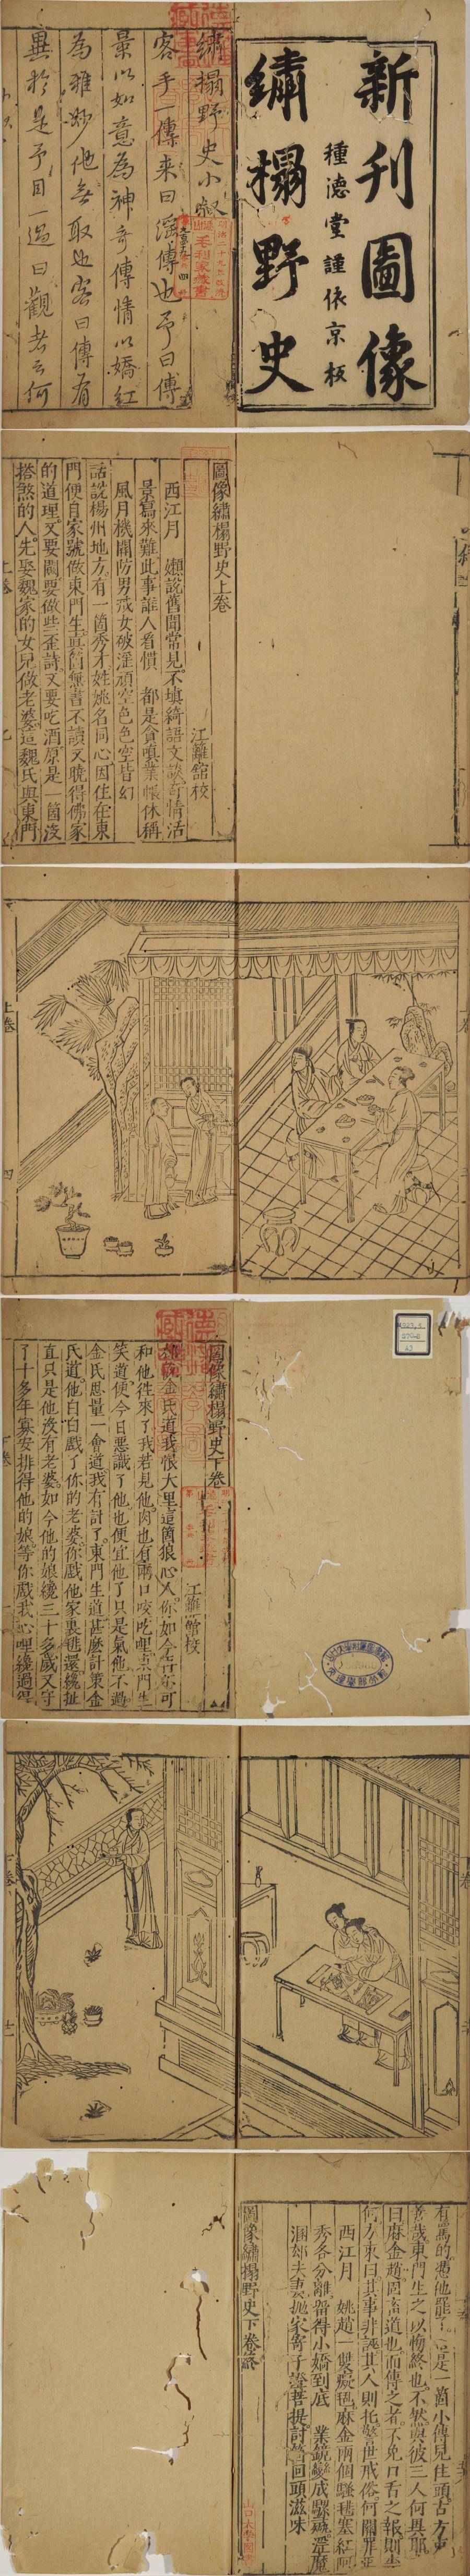 新刊圖像
種德堂謹依京板
繡榻野史
繡榻野史小敘
客手一傳來曰滛傳也予曰傳
景以如意為神奇傳情以嬌紅
為雅妙他無取也客曰傳有
異於是予目一過曰觀者云何
圖像繡榻野史上卷
江籬館校
西江月　嬾說舊聞常見不填綺語文談奇情活
景寫來難此事誰人看慣　都是貪嗔業帳休稱
風月機關防男戒女破淫頑空色色空皆幻
話說楊州地方有一箇秀才姓姚名同心因住在東
門便自家號做東門生真箇無書不讀又曉得佛家
的道理又要闞要做些歪詩又要吃酒原是一箇沒
搭煞的人先娶魏家的女兒做老婆這魏氏與東門
上卷
上卷
四
圖像繡榻野史下卷
江籬館校
金氏道我恨大里這箇狼心人你如今若不可
和他徃來了我若見他肉也有兩口咬吃哩東門生
笑道便今日惡識了他也便宜他了只是氣他不過
金氏思量一會道我有計了東門生道甚麽計策金
氏道他白白戲了你的老婆你戲他家裏毴還纔扯
直只是他沒有老婆如今他的娘纔三十多歲又守
了十多年寡安排得他的娘等你戲我心哩纔過得
下卷
下卷
有罵的憑他罷了這是一箇小傳見住頭古方史
善哉東門生之以悔終也不然與彼三人何異耶
曰麻金趙固畜道也而傳之者不免口舌之報則
何方史曰其事非誣其人則托警世戒俗何關罪
西江月　姚趙一雙癡䰟麻金兩個騷毴塞紅
秀各分離畱得小嬌到底　業鏡變成騾
溷郊夫妻拋家寄子證菩提討箇回頭滋味
圖像繡榻野史下卷終